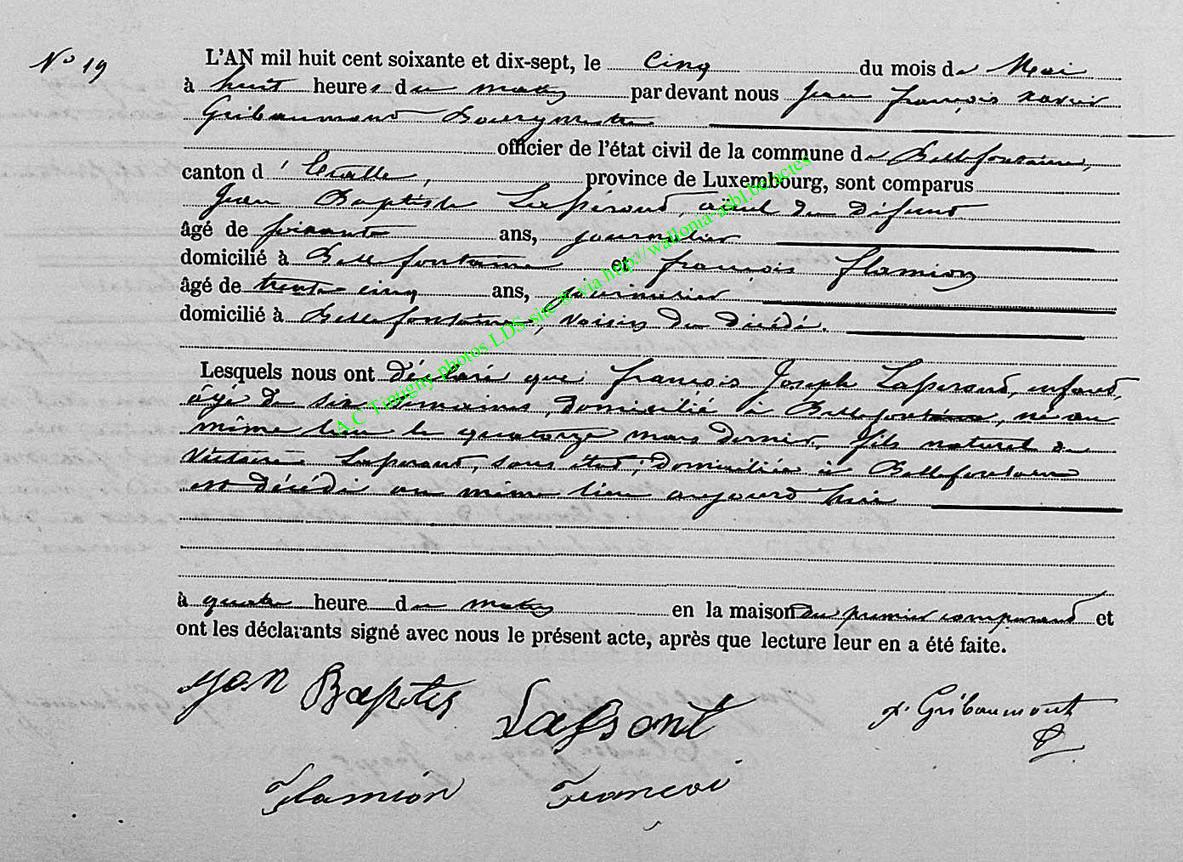 N° 19
L'AN mil huit cent soixante et dix-sept, le cinq du mois de Mai
à huit heures du matin par devant nous Jean françois xavier
Gribaumont Bourgmestre
officier de l'état civil de la commune de Bellefontaine,
canton d'Etalle, province de Luxembourg, sont comparus
Jean Baptiste Laperaud, aieul du défunt
âgé de soixante ans, journalier
domicilié à Bellefontaine et françois flamion
âgé de trente cinq ans,
domicilié à Bellefontaine, voisin du décédé.
Lesquels nous ont déclaré que françois Joseph Laperaud, enfant,
âgé de six semaines, domicilié à Bellefontaine, né au
même lieu le quatorze mars dernier, fils naturel de
Victoire Laperaud, sans état, domiciliée à Bellefontaine
est décédé au même lieu aujourd'hui
à quatre heure du matin en la maison du premier comparant et
ont les déclarants signé avec nous le présent acte, après que lecture leur en a été faite.
Baptis
x. Gribaumont
Flamion Françoi
A.C Tintigny photos LDS-site © via http://wallonia-asbl.be/actes